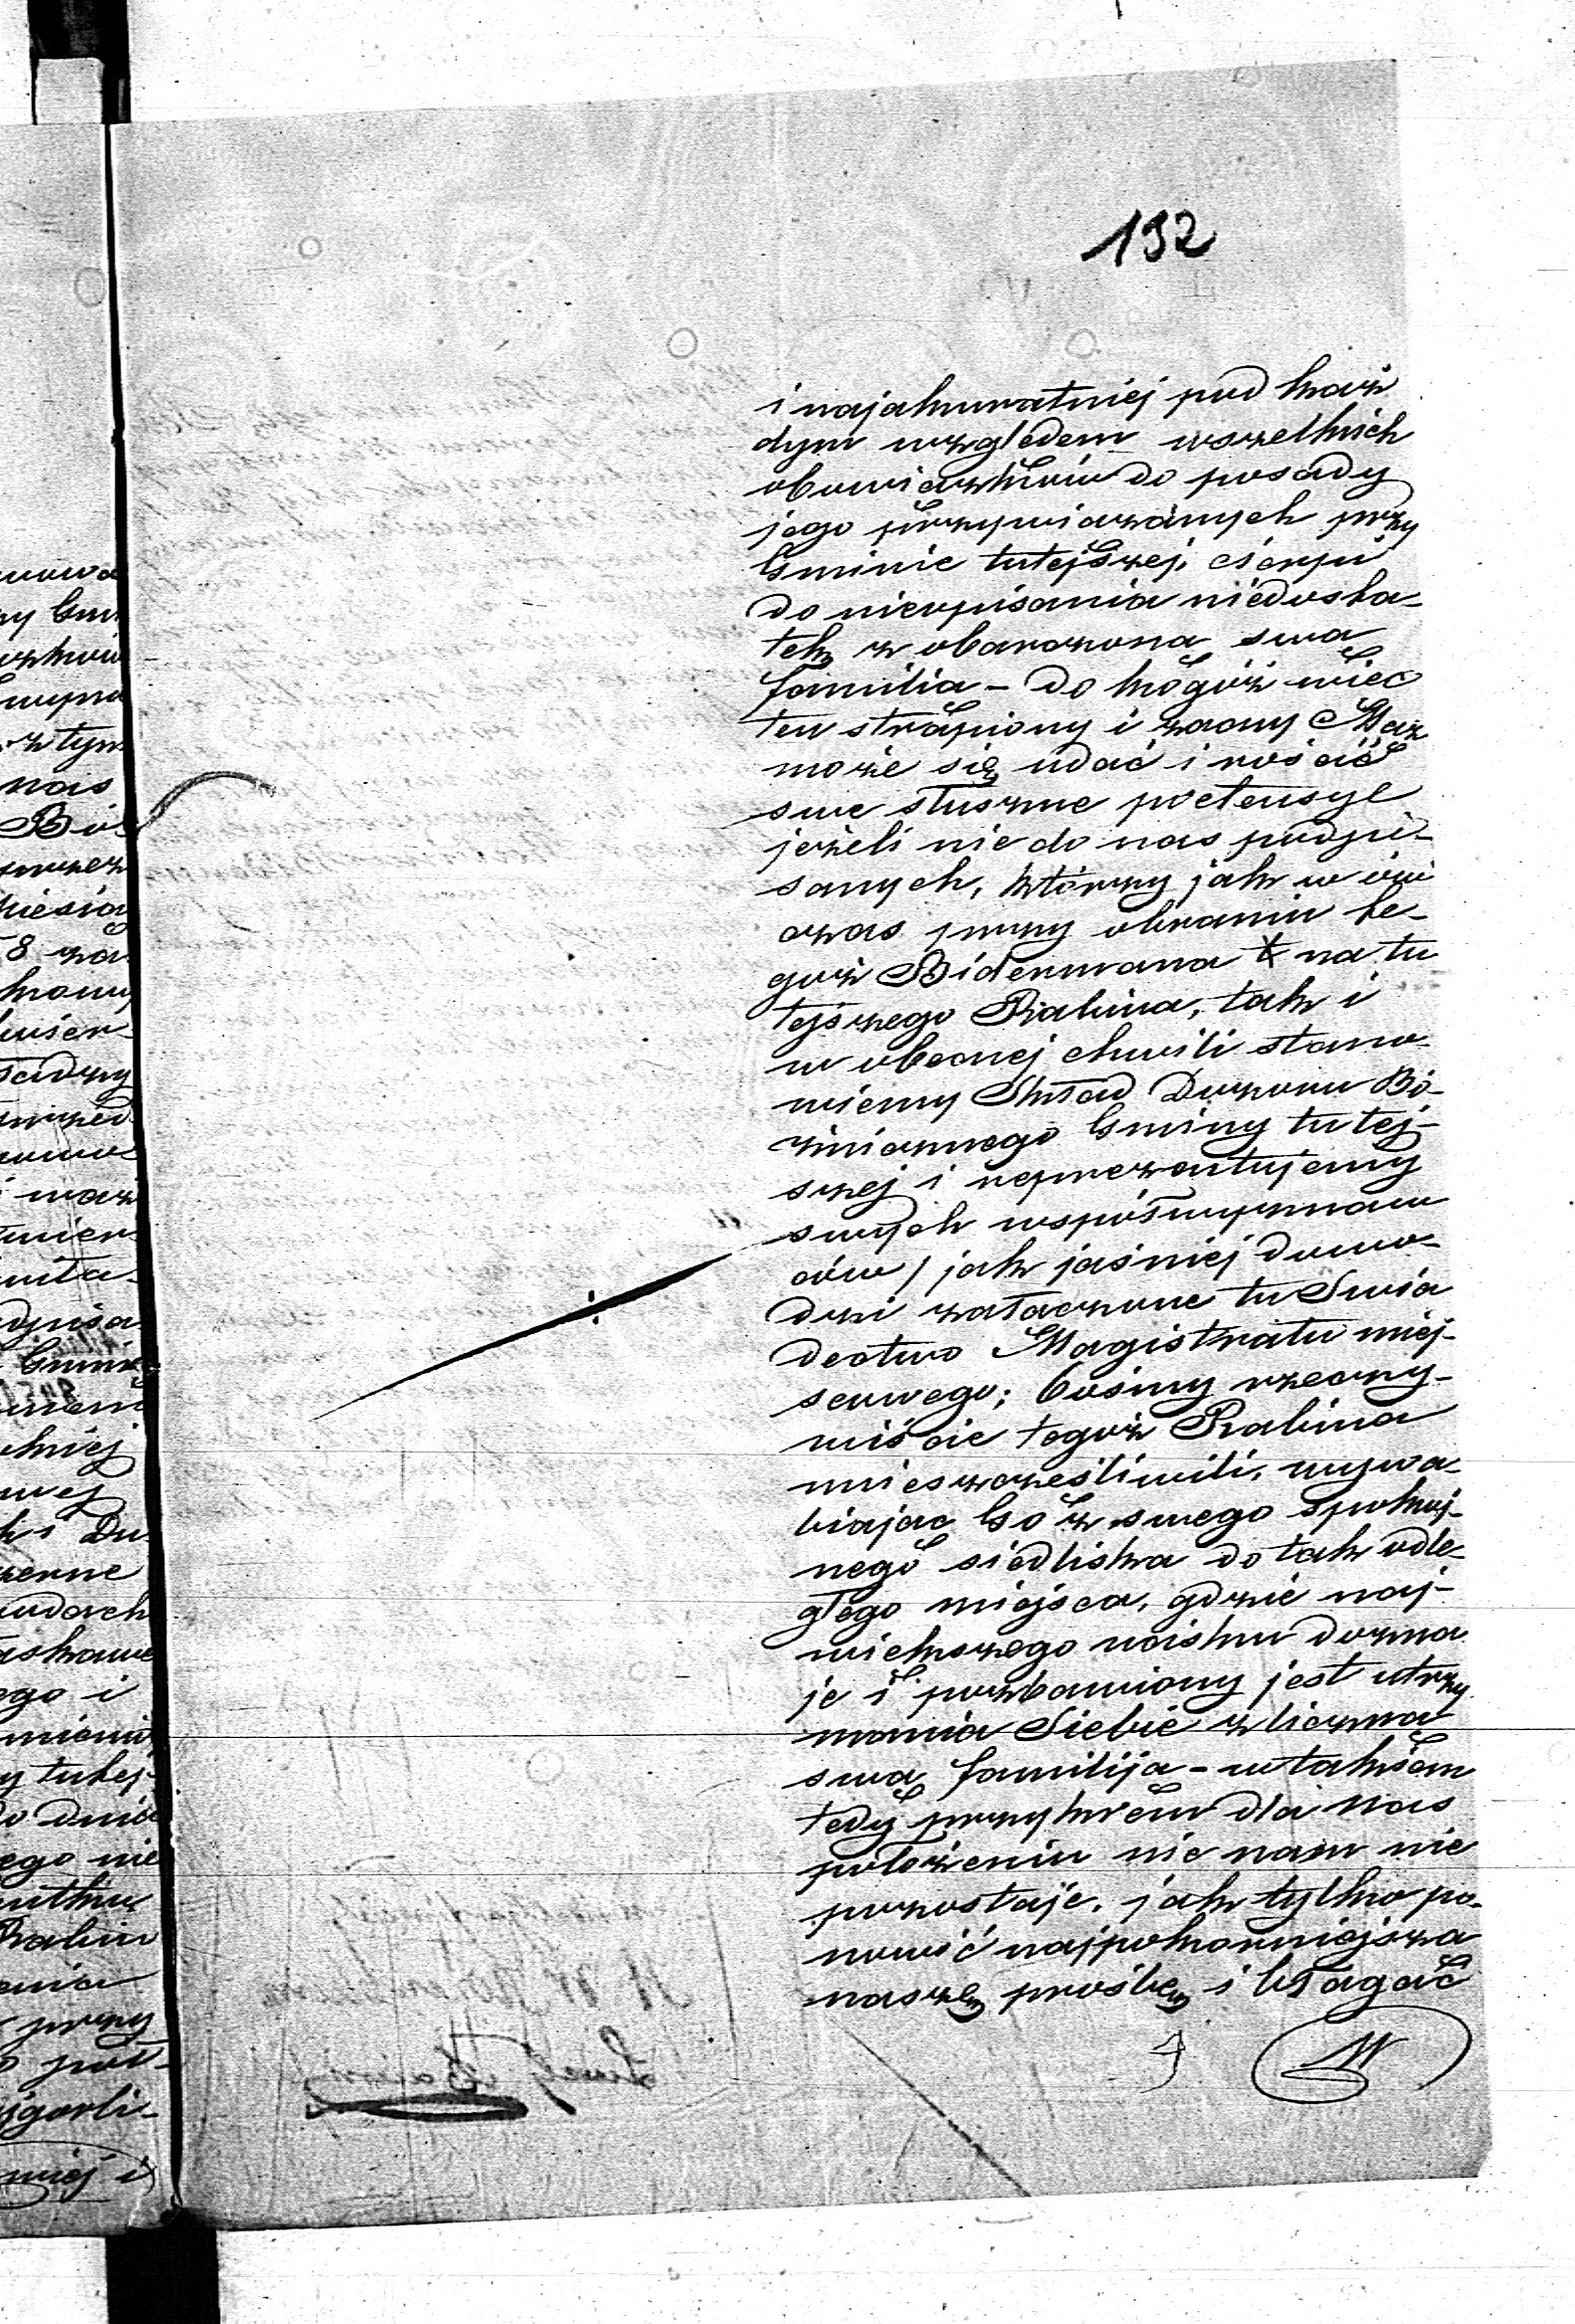 192
i najakuratniej pod każ
dym względem wszelkich
obowiązków do posady
jego przywiązanych przy
Gminie tutejszej, cierpi
do nieopisania niedosta-
tek z obarczoną swą
familią - do kogóż więc
ten strapiony i zacny Mąż
może się udać i rościć
swe słuszne pretensye
jeżeli nie do nas podpi-
sanych, którzy jak w ów
czas przy obraniu te-
goż Bidermana na tu
tejszego Rabina, tak i
w obecnej chwili stano-
wiemy Skład Dozoru Bó-
żnicznego Gminy tutej-
szej i reprezentujemy
swych współwyznaw
ców / jak jaśniej dowo-
dzi załączone tu Swia
dectwo Magistratu miej-
scowego; bośmy rzeczy-
wiście tegoż Rabina
unieszczęśliwili, wywa-
biając Go z swego spokoj-
nego siedliska do tak odle-
głego miejsca, gdzie naj-
większego ucisku dozna
je i pozbawiony jest utrzy
mania Siebie z liczną
swą familiją - w takiém
tedy przykrém dla nas
położeniu nic nam nie
pozostaje, jak tylko po-
nowić najpokorniejszą
naszę prośbę i błagać
nowa
ny Gmi
wyzna
z tym
nas
Bóż
przez
miesią
8 za
wier-
i Do
ego i
mieni
y tutej-
do dnia
ego nie
Rabin
enia
przy
gorli-
wiej i